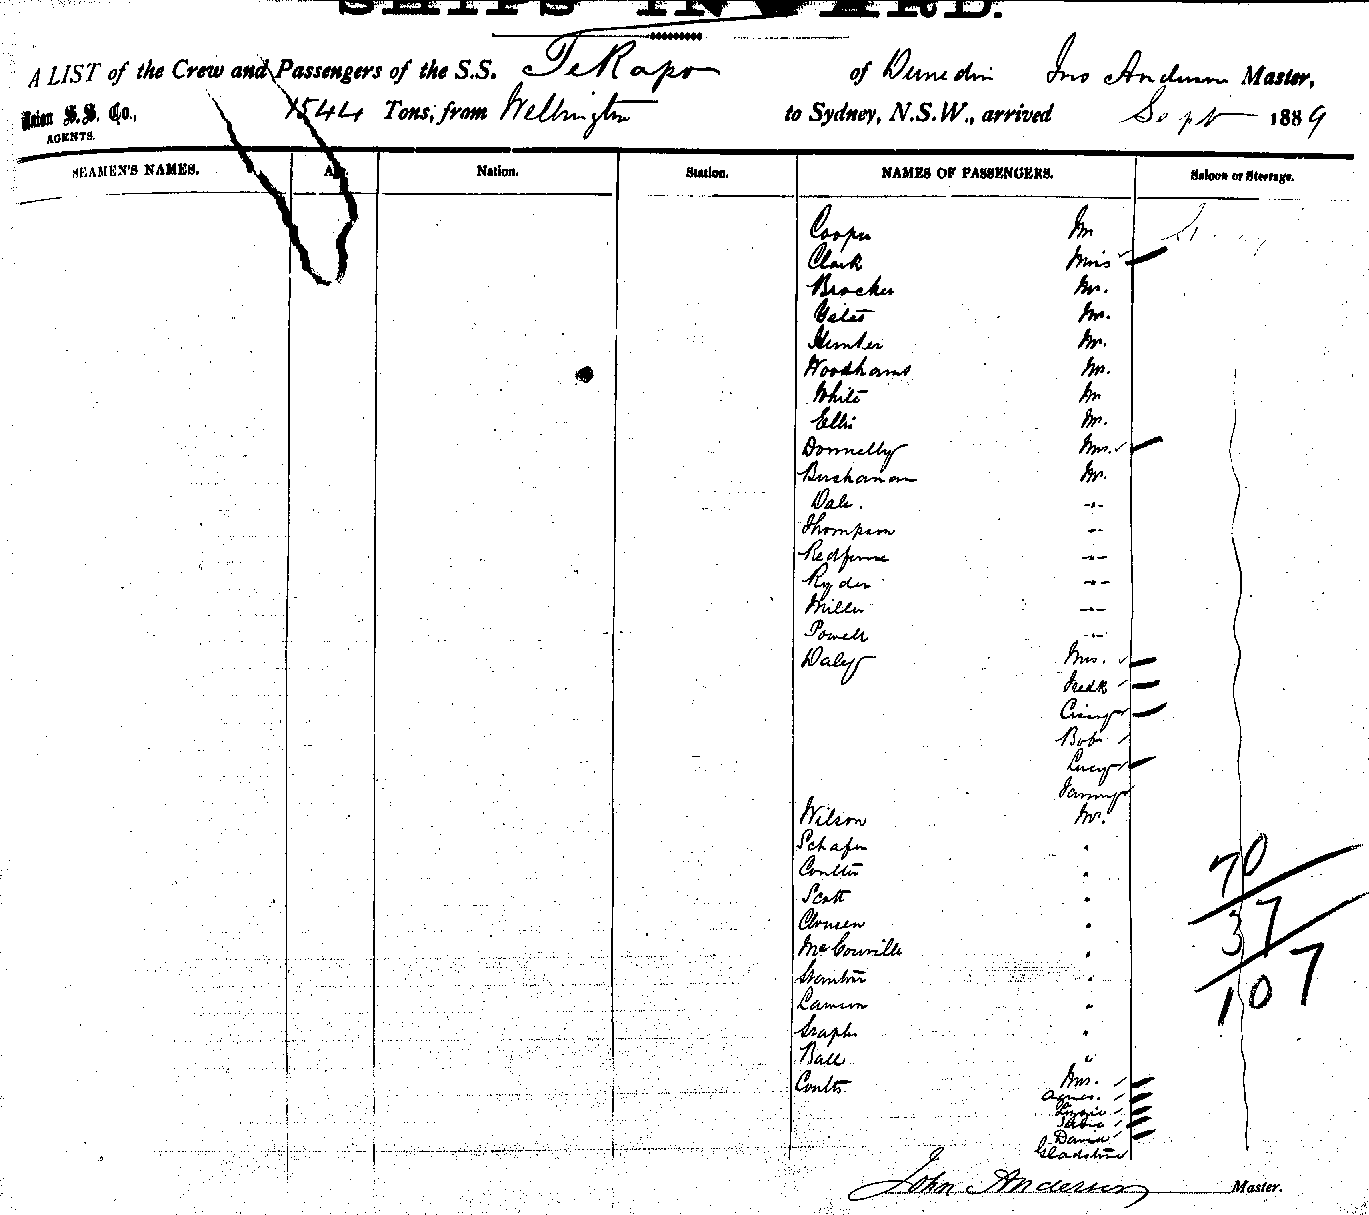 SHIPS INWARD.
A LIST of the Crew and Passengers of the S.S. TeKapo of Dunedin Jno Anderson Master,
Union S.S. Co., AGENTS. 1544 Tons, from Wellington to Sydney, N.S.W., arrived Sept 1889
SEAMEN'S NAMES. Age. Nation. Station. NAMES OF PASSENGERS. Saloon or Steerage.
Cooper Mr
Clark Miss
Mr.
Yates Mr.
Hunter Mr.
Woodhams Mr.
White Mr
Ellis Mr.
Donnelly Mrs.
Buchanan Mr.
Dale. -"-
Thompson -"-
Redferne -"-
Ryder -"-
Miller -"-
Powell -"-
Daly Mrs.
Fredk
Bob
Lucy
Wilson Mr.
Schafer "
Coulter "
Scott "
Clousen "
"
"
Lawson "
"
Ball "
Coults Mrs.
Agnes.
Lizzie
David
Gladstone
70
37
107
John Anderson Master.